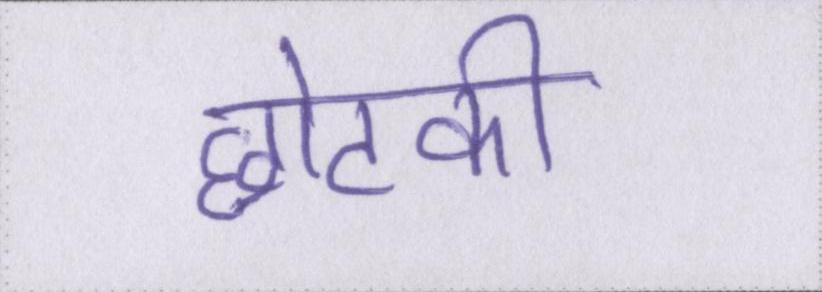 छोटकी